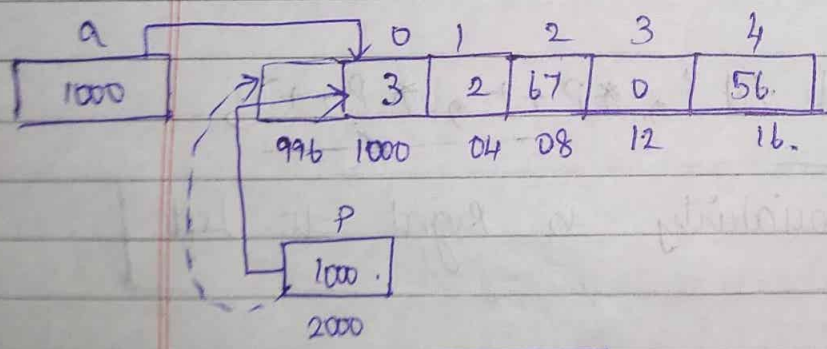 a 0 1 2 3 4
1000 3 2 67 0 56.
996 1000 04 08 12 16.
P
1000.
2000